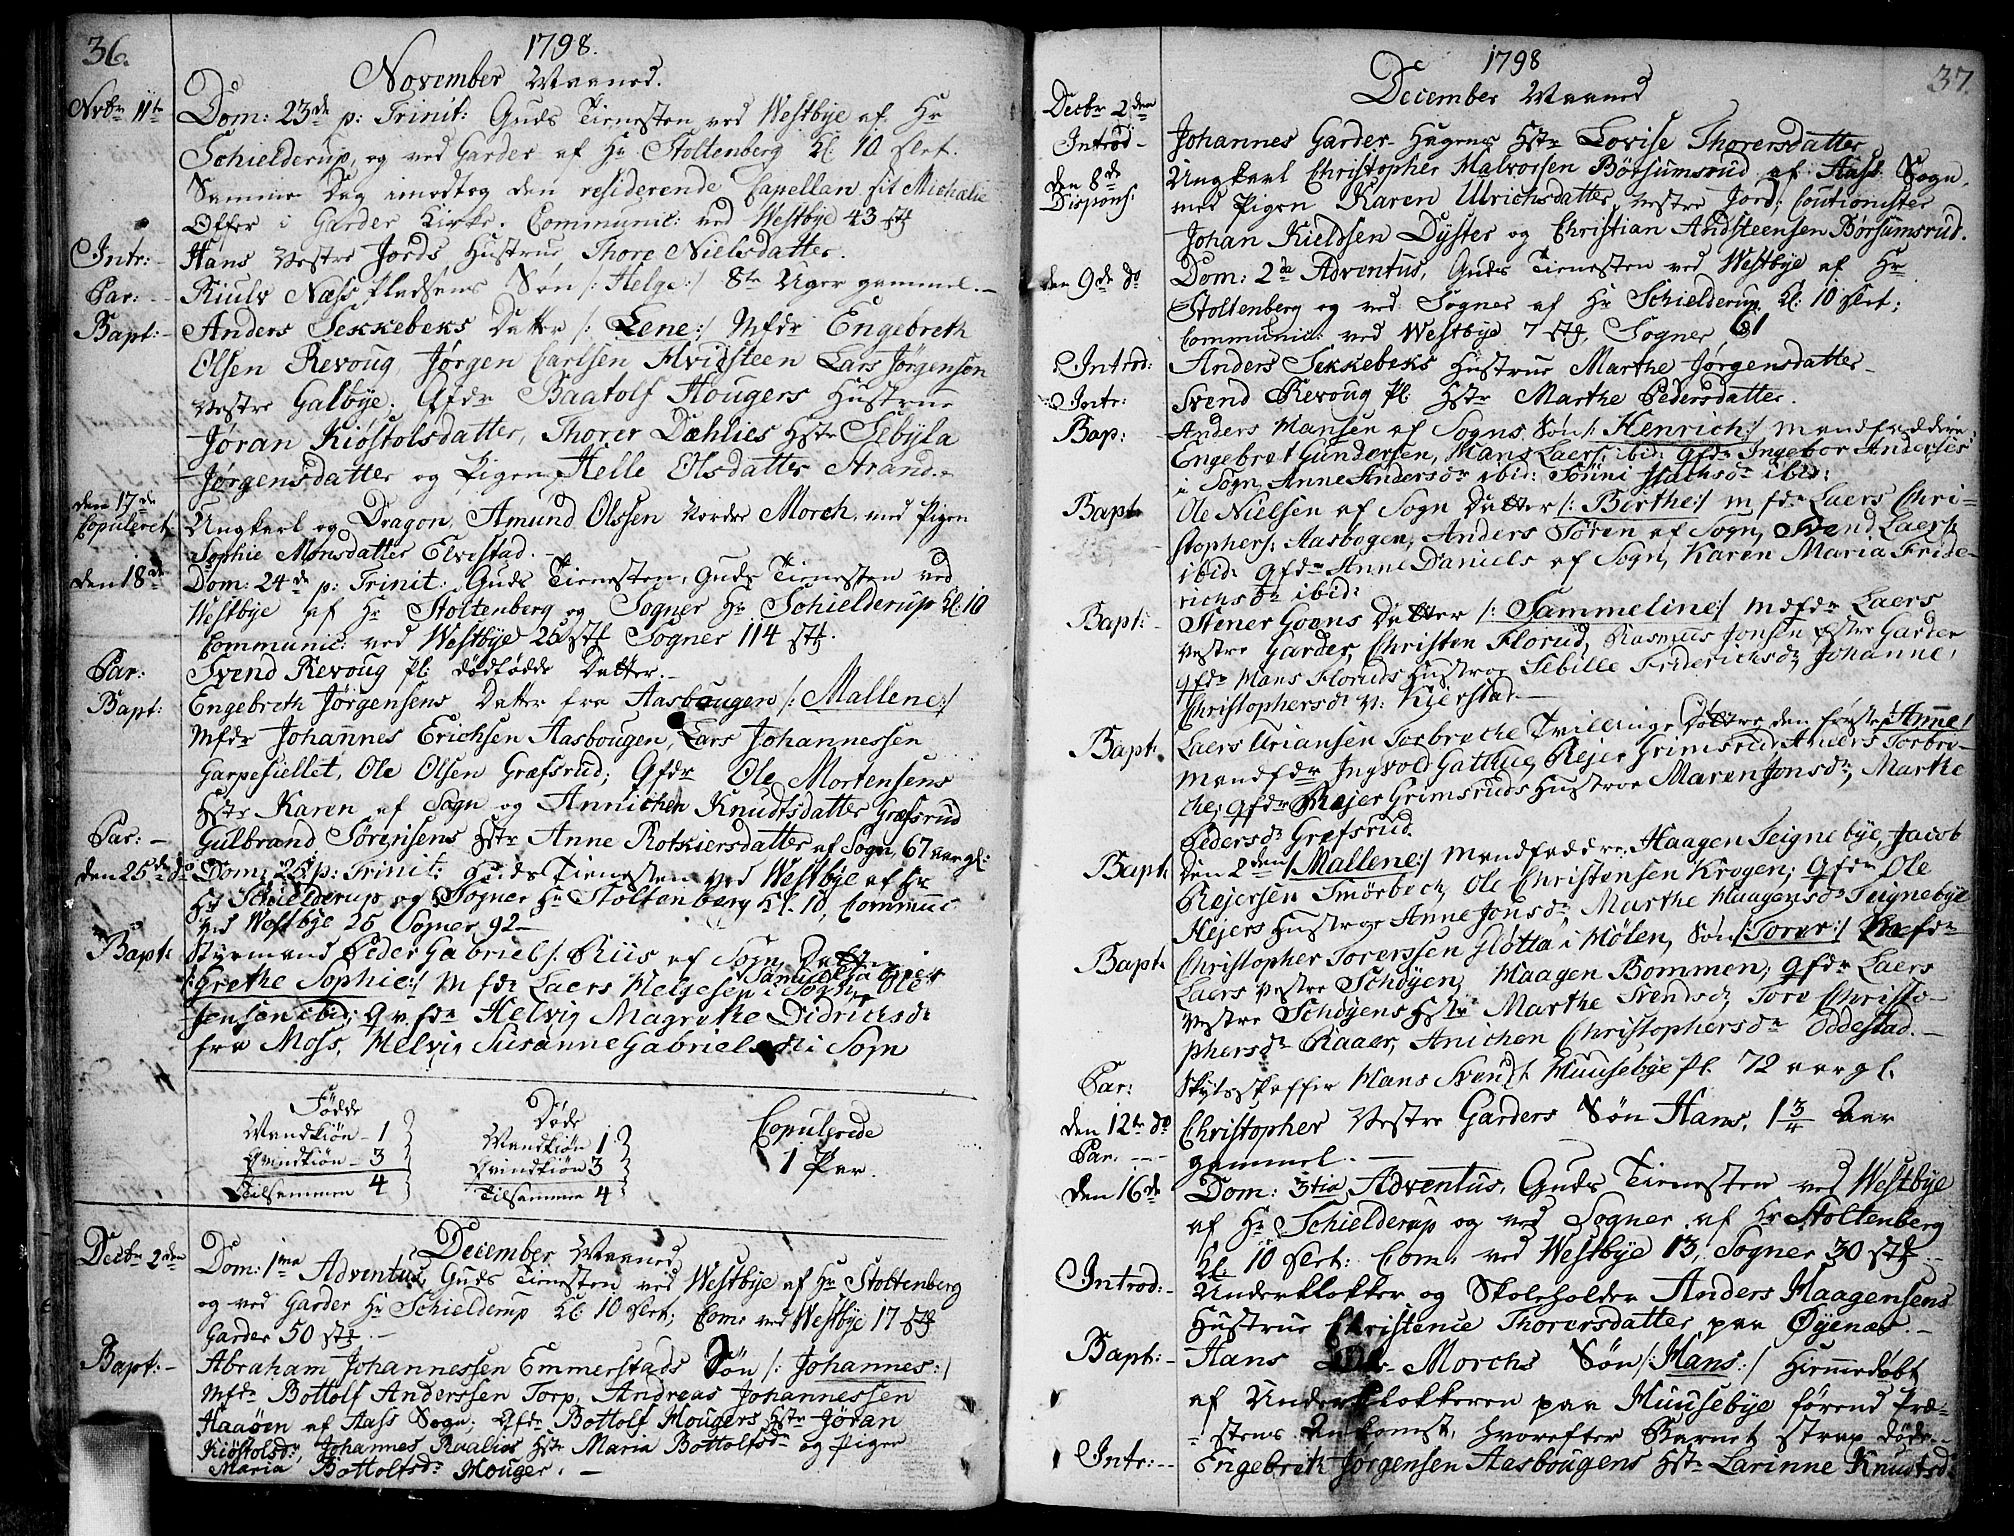 36.
1798.
November Maaned.
Nvbr 11te
Dom: 23de p: Trinit: Guds Tienesten ved Westbye af Hr
Schielderup, og ved Garder af Hr Stoltenberg Kl. 10 slet.
Samme Dag imodtog den residerende Capellan sit Michalie
Offer i Garder Kirke. Communic: ved Westbye 43 stk
Intr: - Hans Vestre Jords Hustrue Thore Nielsdatter.
Par: - Kiulv Næss Pladsens Søn /: Helge :/ 8te Uger gammel. -
Bapt: - Anders Sekkebeks Datter /: Lene :/ Mfdr Engebreth
Olsen Revoug, Jørgen Carlsen Hvidsteen Lars Jørgensen
Vestre Galbye; Qfdr Baatolf Hougers Hustrue
Jøran Kiøstolsdatter, Thorer Dæhlies Hstr Sebyla
Jørgensdatter og Pigen Helle Olsdatter Strand.
den 17de
Copuleret
Ungkarl og Dragon, Amund Olssen Nordre Morch, med Pigen
Sophie Monsdatter Elvestad. -
den 18de
Dom: 24de p: Trinit: Guds Tienesten, Guds Tienesten ved
Westbye af Hr Stoltenberg og Sogner Hr Schielderup Kl: 10
Communic: ved Westbye 25 stk Sogner 114 stk.
Par: Svend Revoug Pl: dødfødde Datter. -
Bapt: Engebreth Jørgensens Datter fra Aasbougen /: Mallene :/
Mfdr Johannes Erichsen Aasbougen, Lars Johannessen
Garpesiellet, Ole Olsen Græfsrud; Qfdr Ole Mortensens
Hstr Karen af Sogn og Annichen Knudtsdatter Græfsrud
Par: - Gulbrand Sørensens Hstr Anne Rotkiersdatter af Sogn, 67 aar gl:
den 25de do Dom: 25 p: Trinit: Guds Tienesten ved Westbye af Hr
Hr Schielderup og Sogner Hr Stoltenberg Kl. 10, Commu:
ved Westbye 25 Sogner 92 -
Bapt: Styrmand Peder Gabriels: Riis af Sogn Datter
/: Grethe Sophie :/ Mfdr Laers Helgesen i Sogn, Ole
Jensen ibid; Qvfdr Helvig Magrethe Didrichsdr
fra Moss, Helvig Susanne Gabrielsdr i Sogn
Fødde
Mandkiøn - 1
Qvindkiøn - 3
Tilsammen 4
Døde
Mandkiøn 1
Qvindkiøn 3
Tilsammen 4
Copulerede
1 Par.
December Maaned
Decbr 2den
Dom: 1ma Adventus, Guds Tienesten ved Westbye af Hr Stoltenberg
og ved Garder Hr Schielderup Kl: 10 slet; Com: ved Westbye 17 stk
Garder 50 stk. -
Bapt: - Abraham Johannessen Emmerstads Søn /: Johannes :/
Mfdr Bottolf Anderssen Torp, Andreas Johannessen
Haaøen af Aass Sogn; Qfdr Bottolf Hougers Hstr Jøran
Kiøstolsdr, Johannes Raalios Hstr Maria Bottolfsdr og Pigen
Maria Bottolfsdr Houger. -
1798
37
December Maaned
Decbr 2den
Introd - Johannes Garder Hugens Hstr Lovise Thorersdatter
den 8de
Dispens:
Ungkarl Christopher Halvorsen Børsumsrud af Aass Sogn,
med Pigen Karen Ulrichsdatter Vestre Jord; Coutionister
Johan Kieldsen Dyster og Christian Andsteensen Børsumsrud.
den 9de do Dom: 2da Adventus, Guds Tienesten ved Westbye af Hr
Stoltenberg og ved Sogner af Hr Schielderup Kl: 10 slet;
Communic: ved Westbye 7 stk, Sogner 61
Introd: Anders Sekkebeks Hustrue Marthe Jørgensdatter -
Intr: Svend Revoug Pl: Hstr Marthe Pedersdatter.
Bap: Anders Hansen af Sogns Søn /: Henrich :/ mandfaddere
Engebret Gundersen, Hans Laers: ibid: Qfdr Ingebor Andersdr
i Sogn, Anne Andersdr ibid: Sønni Isachsdr ibid:
Bapt. Ole Nielsen af Sogn Datter /: Birthe :/ mfdr Laers Chri-
stophers: Aasbogen, Anders Søren af Sogn, Svend Laers:
ibid: Qfdr Anne Daniels af Sogn, Karen Maria Fride-
richsdr ibid:
Bapt: Stener Goens Datter /: Sammeline :/ mdfdr Laers
Vestre Garder, Christen Florud, Rasmus Jonsen Vestre Garder
qfdr Hans Floruds Hustroe Sebille Friderichsdr, Johanne
Christophersdr N: Kjerstad. -
Bapt. Laers Uriansen Torbrethe Tvillinge Døttre, den første /: Anne :/
mandfdr Ingvold Gatthue, Rejer Grimsrud, Anders Torbre-
the; qfdr Rejer Grimsruds Hustroe Maren Jonsdr, Marthe
Pedersdr Grefsrud.
Bapt. Den 2den /: Mallene :/ mandfaddere, Haagen Teignebye, Jacob
Rejersen Smørbech, Ole Christensen Krogen; Qfdr Ole
Hejers Hustroe Anne Jonsdr, Marthe Haagensdr Teignebye
Bapt. Christopher Torerssen Sletta i Hølen, Søn /: Torer :/ Mfdr
Laers Vestre Schøyen, Haagen Bommen, Qfdr Laers
Vestre Schøyens Hstr Marthe Svendsdr, Tore Christo-
phersdr Raaer, Anichen Christophersdr Oddestad. -
Par: Skydsskaffer Hans Svends: Huusebye pl. 72 aar gl.
den 12te do
Par: ---
Christopher Vestre Garders Søn Hans, 1 3/4 Aar
gammel. -
den 16de Dom: 3tia Adventus, Guds Tienesten ved Westbye
af Hr Schielderup og ved Sogner af Hr Stoltenberg
Kl: 10 slet: Com: ved Westbye 13, Sogner 30 stk
Introd: - Underklokker og Skoleholder Anders Haagensens
Hustrue Christence Thorersdatter paa Øyenas. -
Bapt: - Hans Morchs Søn /: Hans :/ hiemmedøbt
af Underklokkeren paa Huusebye førend Præ-
stens Ankomst, hvorefter Barnet strax døde. -
Intr: - Engebrith Jørgensen Aasbougens Hstr Larinne Knudtsdr